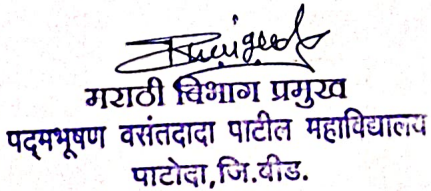 मराठी विभाग प्रमुख
पद्मभूषण वसंतदादा पाटील महाविद्यालय
पाटोदा,जि.बीड.